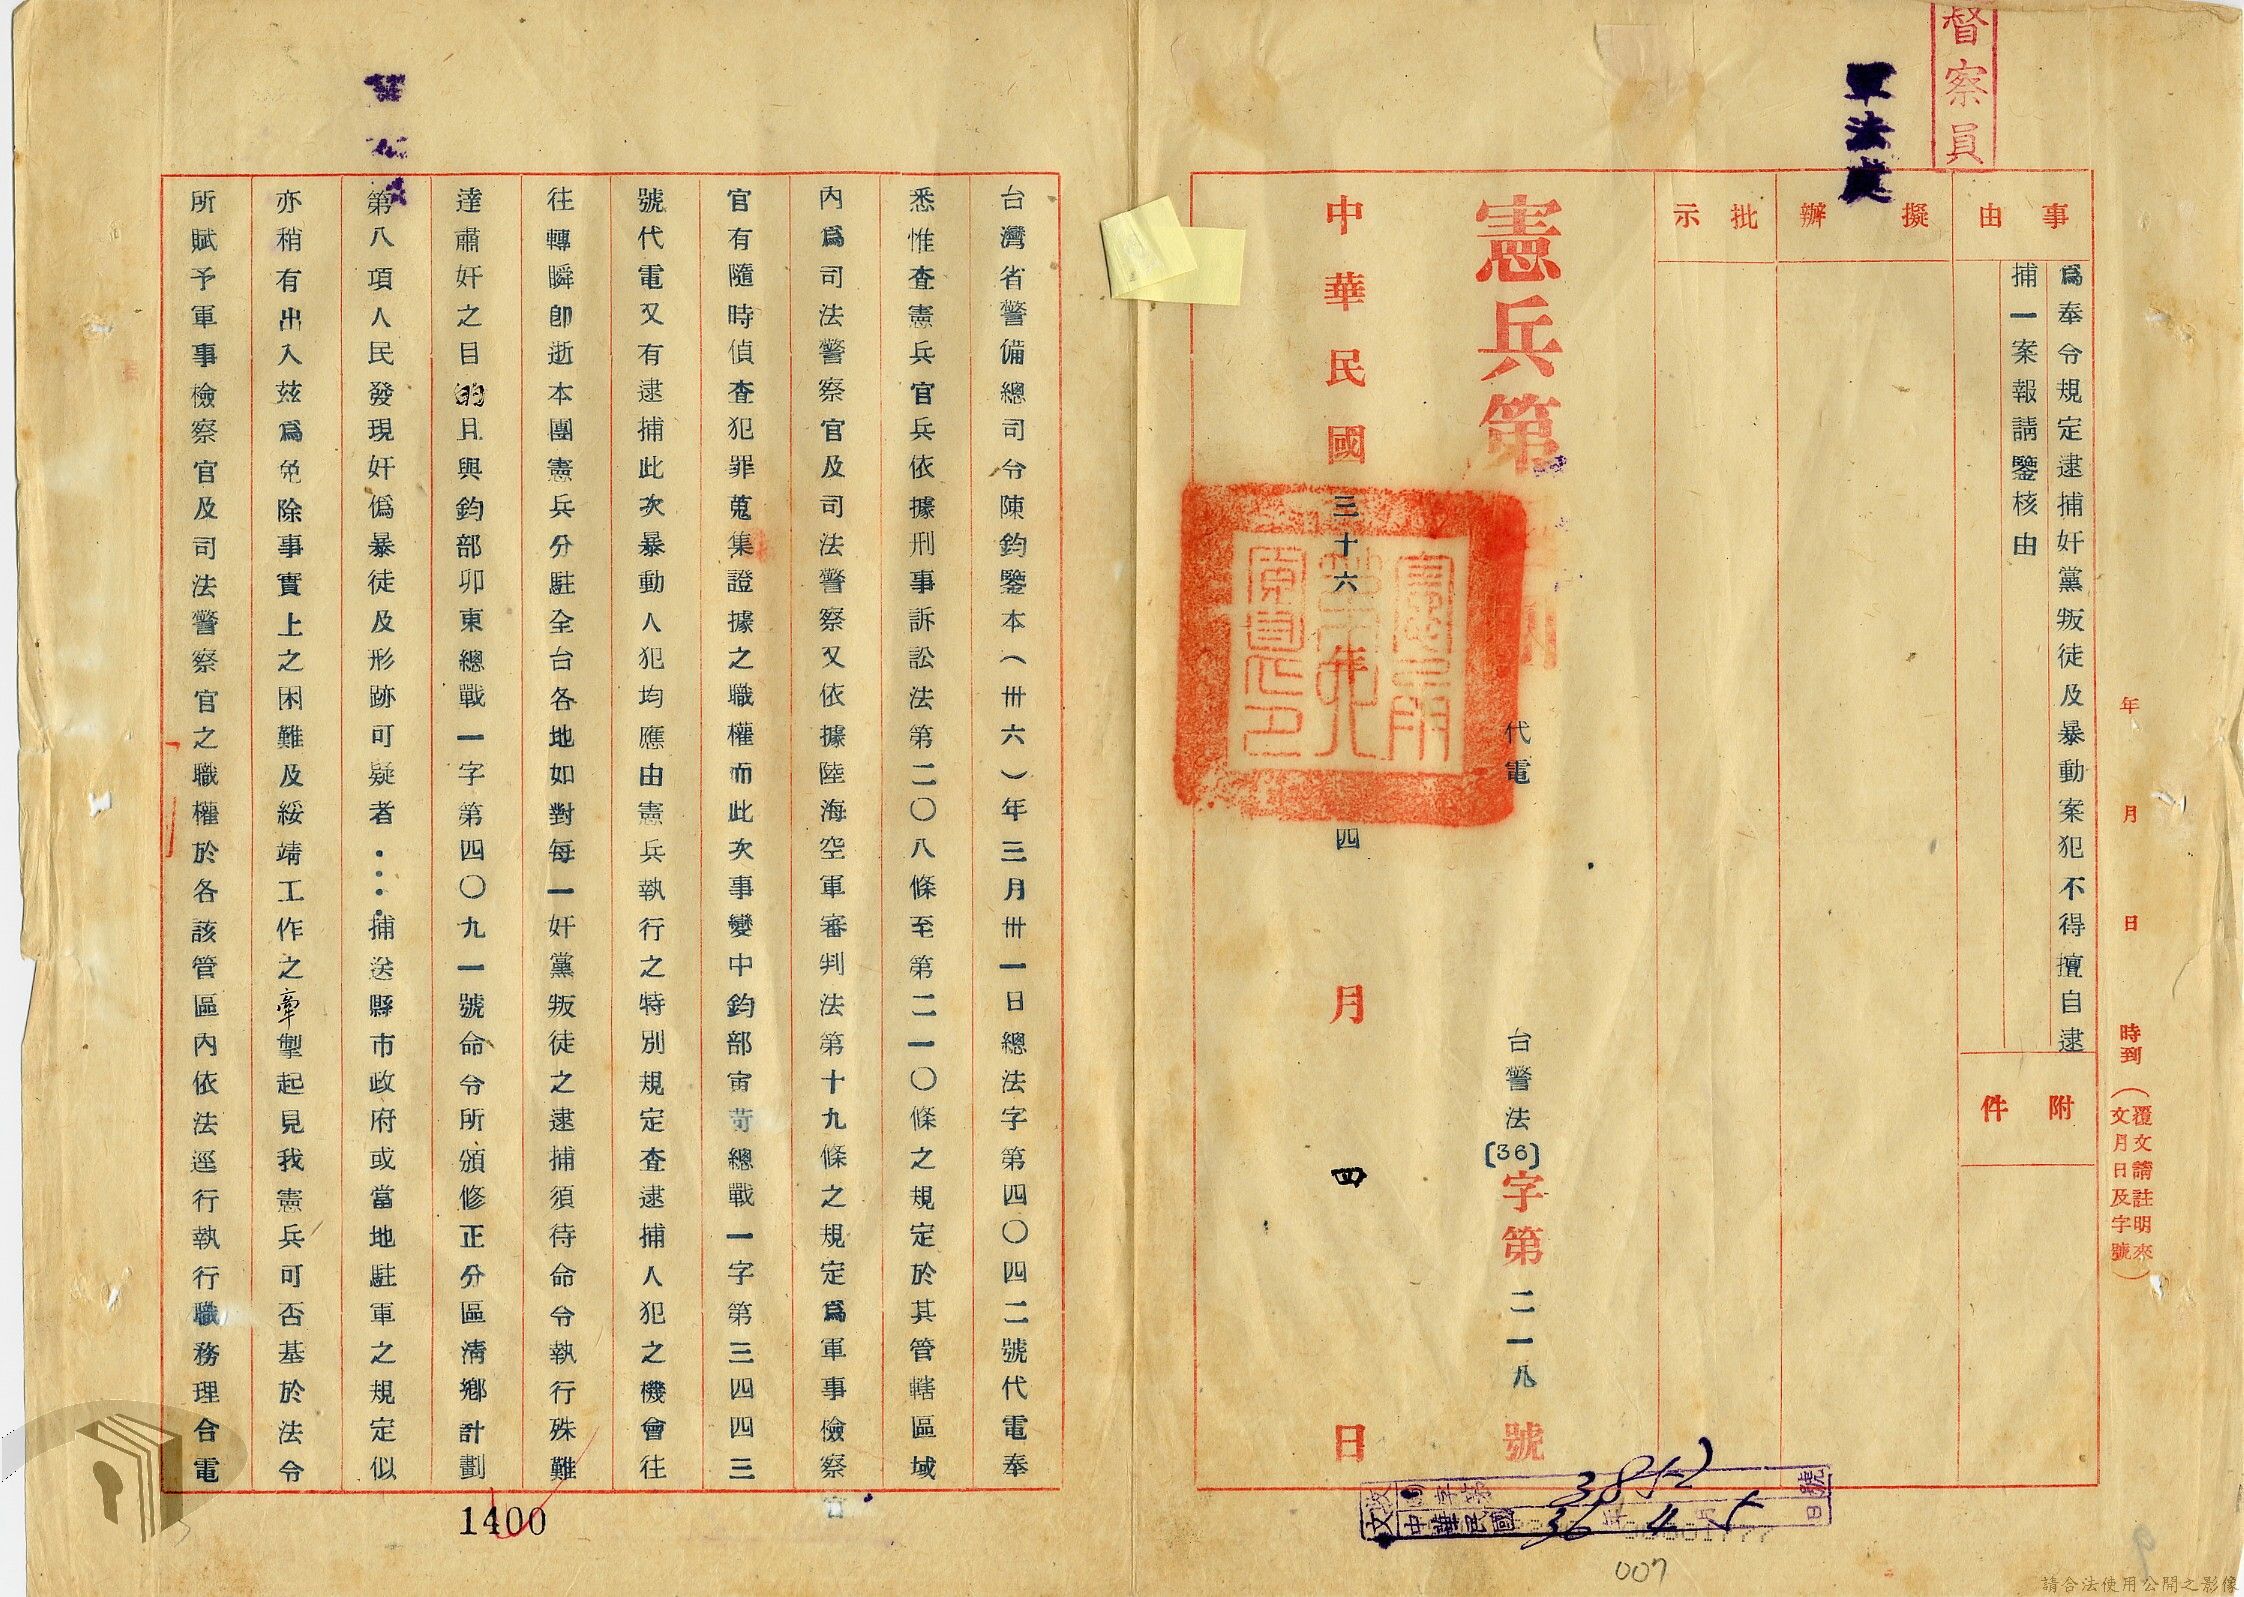 督察員
軍法處
年 月 日 時到（覆文請註明來文月日及字號）
事由
為奉令規定逮捕奸黨叛徒及暴動案犯不得擅自逮
捕一案報請鑒核由
附件
擬辦
批示
憲兵第
代電
台警法(36)字第二一八號
中華民國三十六年四月四日
四
收文
字第3852號
中華民國36年4月5日
007
台灣省警備總司令陳鈞鑒本（卅六）年三月卅一日總法字第四〇四二號代電奉
悉惟查憲兵官兵依據刑事訴訟法第二〇八條至第二一〇條之規定於其管轄區域
內為司法警察官及司法警察又依據陸海空軍審判法第十九條之規定為軍事檢察官
官有隨時偵查犯罪蒐集證據之職權而此次事變中鈞部寅苛總戰一字第三四四三
號代電又有逮捕此次暴動人犯均應由憲兵執行之特別規定查逮捕人犯之機會往
往轉瞬即逝本團憲兵分駐全台各地如對每一奸黨叛徒之逮捕須待命令執行殊難
達肅奸之目的且與鈞部卯東總戰一字第四〇九一號命令所頒修正分區清鄉計劃
第八項人民發現奸偽暴徒及形跡可疑者．．．．捕送縣市政府或當地駐軍之規定似
亦稍有出入茲為免除事實上之困難及綏靖工作之牽掣起見我憲兵可否基於法令
所賦予軍事檢察官及司法警察官之職權於各該管區內依法逕行執行職務理合電
1400
請合法使用公開之影像